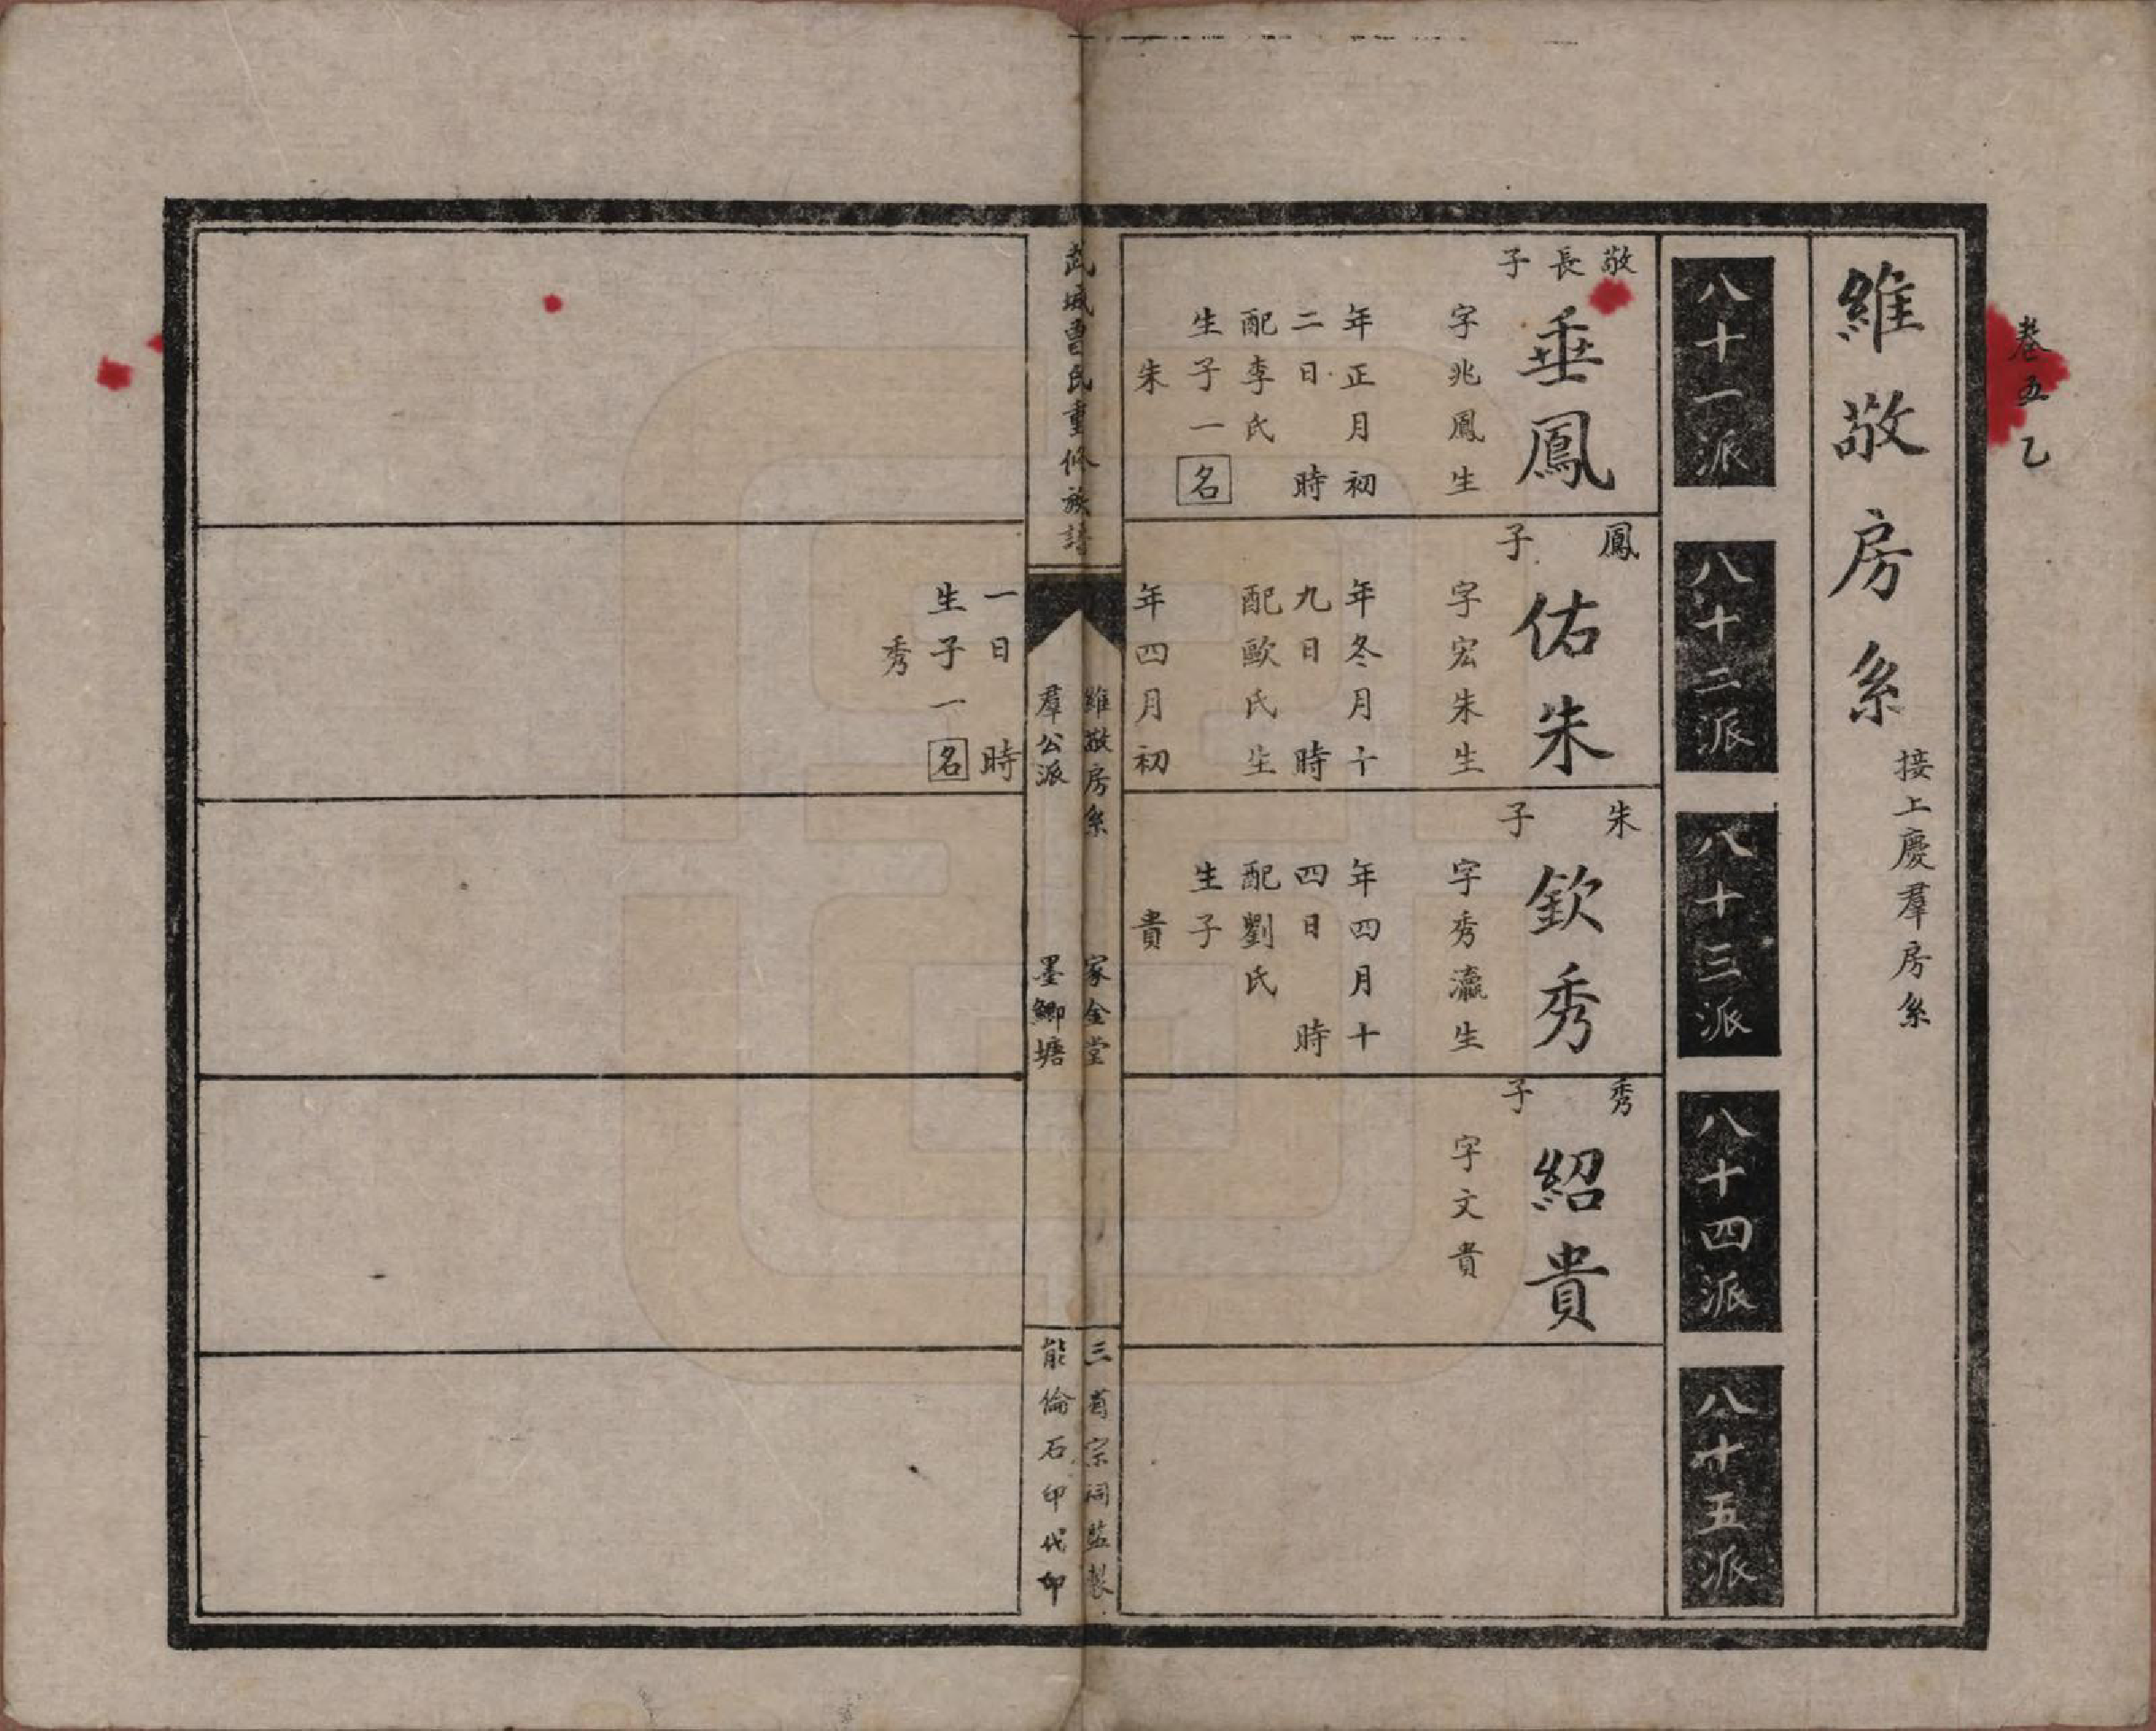 卷五乙
維敬房系
接上慶羣房系
八十一派
八十二派
八十三派
八十四派
八十五派
敬長子
垂鳳
字兆鳳生
年正月初
二日 時
配李氏
生子一名
朱
鳳子
佑朱
字宏朱生
年冬月十
九日 時
配歐氏生
年四月初
一日 時
生子一名
秀
朱子
欽秀
字秀瀛生
年四月十
四日 時
配劉氏
生子
貴
秀子
紹貴
字文貴
武城曹氏重修族譜
維敬房系
羣公派
家金堂
墨鯽塘
三省宗祠監製
能倫石印代印